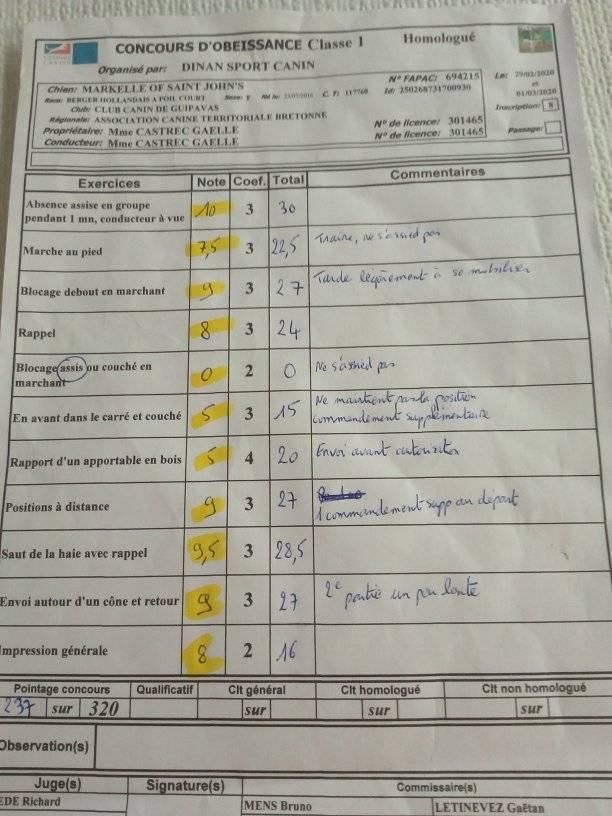 CONCOURS D'OBEISSANCE Classe 1 Homologué
Organisé par: DINAN SPORT CANIN
Chien: MARKELLE OF SAINT JOHN'S N° FAPAC: 694215 Le: 29/02/2020
Race: BERGER HOLLANDAIS A POIL COURT Sexe: F C. T: 117760 Id: 250268731700930 et
Club: CLUB CANIN DE GUIPAVAS 01/03/2020
Régionale: ASSOCIATION CANINE TERRITORIALE BRETONNE Inscription: 8
Propriétaire: Mme CASTREC GAELLE N° de licence: 301465 Passage:
Conducteur: Mme CASTREC GAELLE N° de licence: 301465
Exercices Note Coef. Total Commentaires
Absence assise en groupe
pendant 1 mn, conducteur à vue 10 3 30
Marche au pied 7,5 3 22,5 Traine, ne s'assied pas
Blocage debout en marchant 9 3 27 Tarde légèrement à se mobiliser
Rappel 8 3 24
Blocage assis ou couché en
marchant 0 2 0 Ne s'assied pas
En avant dans le carré et couché 5 3 15 Ne maintient pas la position
commandement supplémentaire
Rapport d'un apportable en bois 5 4 20 Envoi avant autorisation
Positions à distance 9 3 27 1 commandement supp au départ
Saut de la haie avec rappel 9,5 3 28,5
Envoi autour d'un cône et retour 9 3 27 2e partie un peu lente
Impression générale 8 2 16
Pointage concours Qualificatif Clt général Clt homologué Clt non homologué
237 sur 320 sur sur sur
Observation(s)
Juge(s) Signature(s) Commissaire(s)
EDE Richard MENS Bruno LETINEVEZ Gaëtan